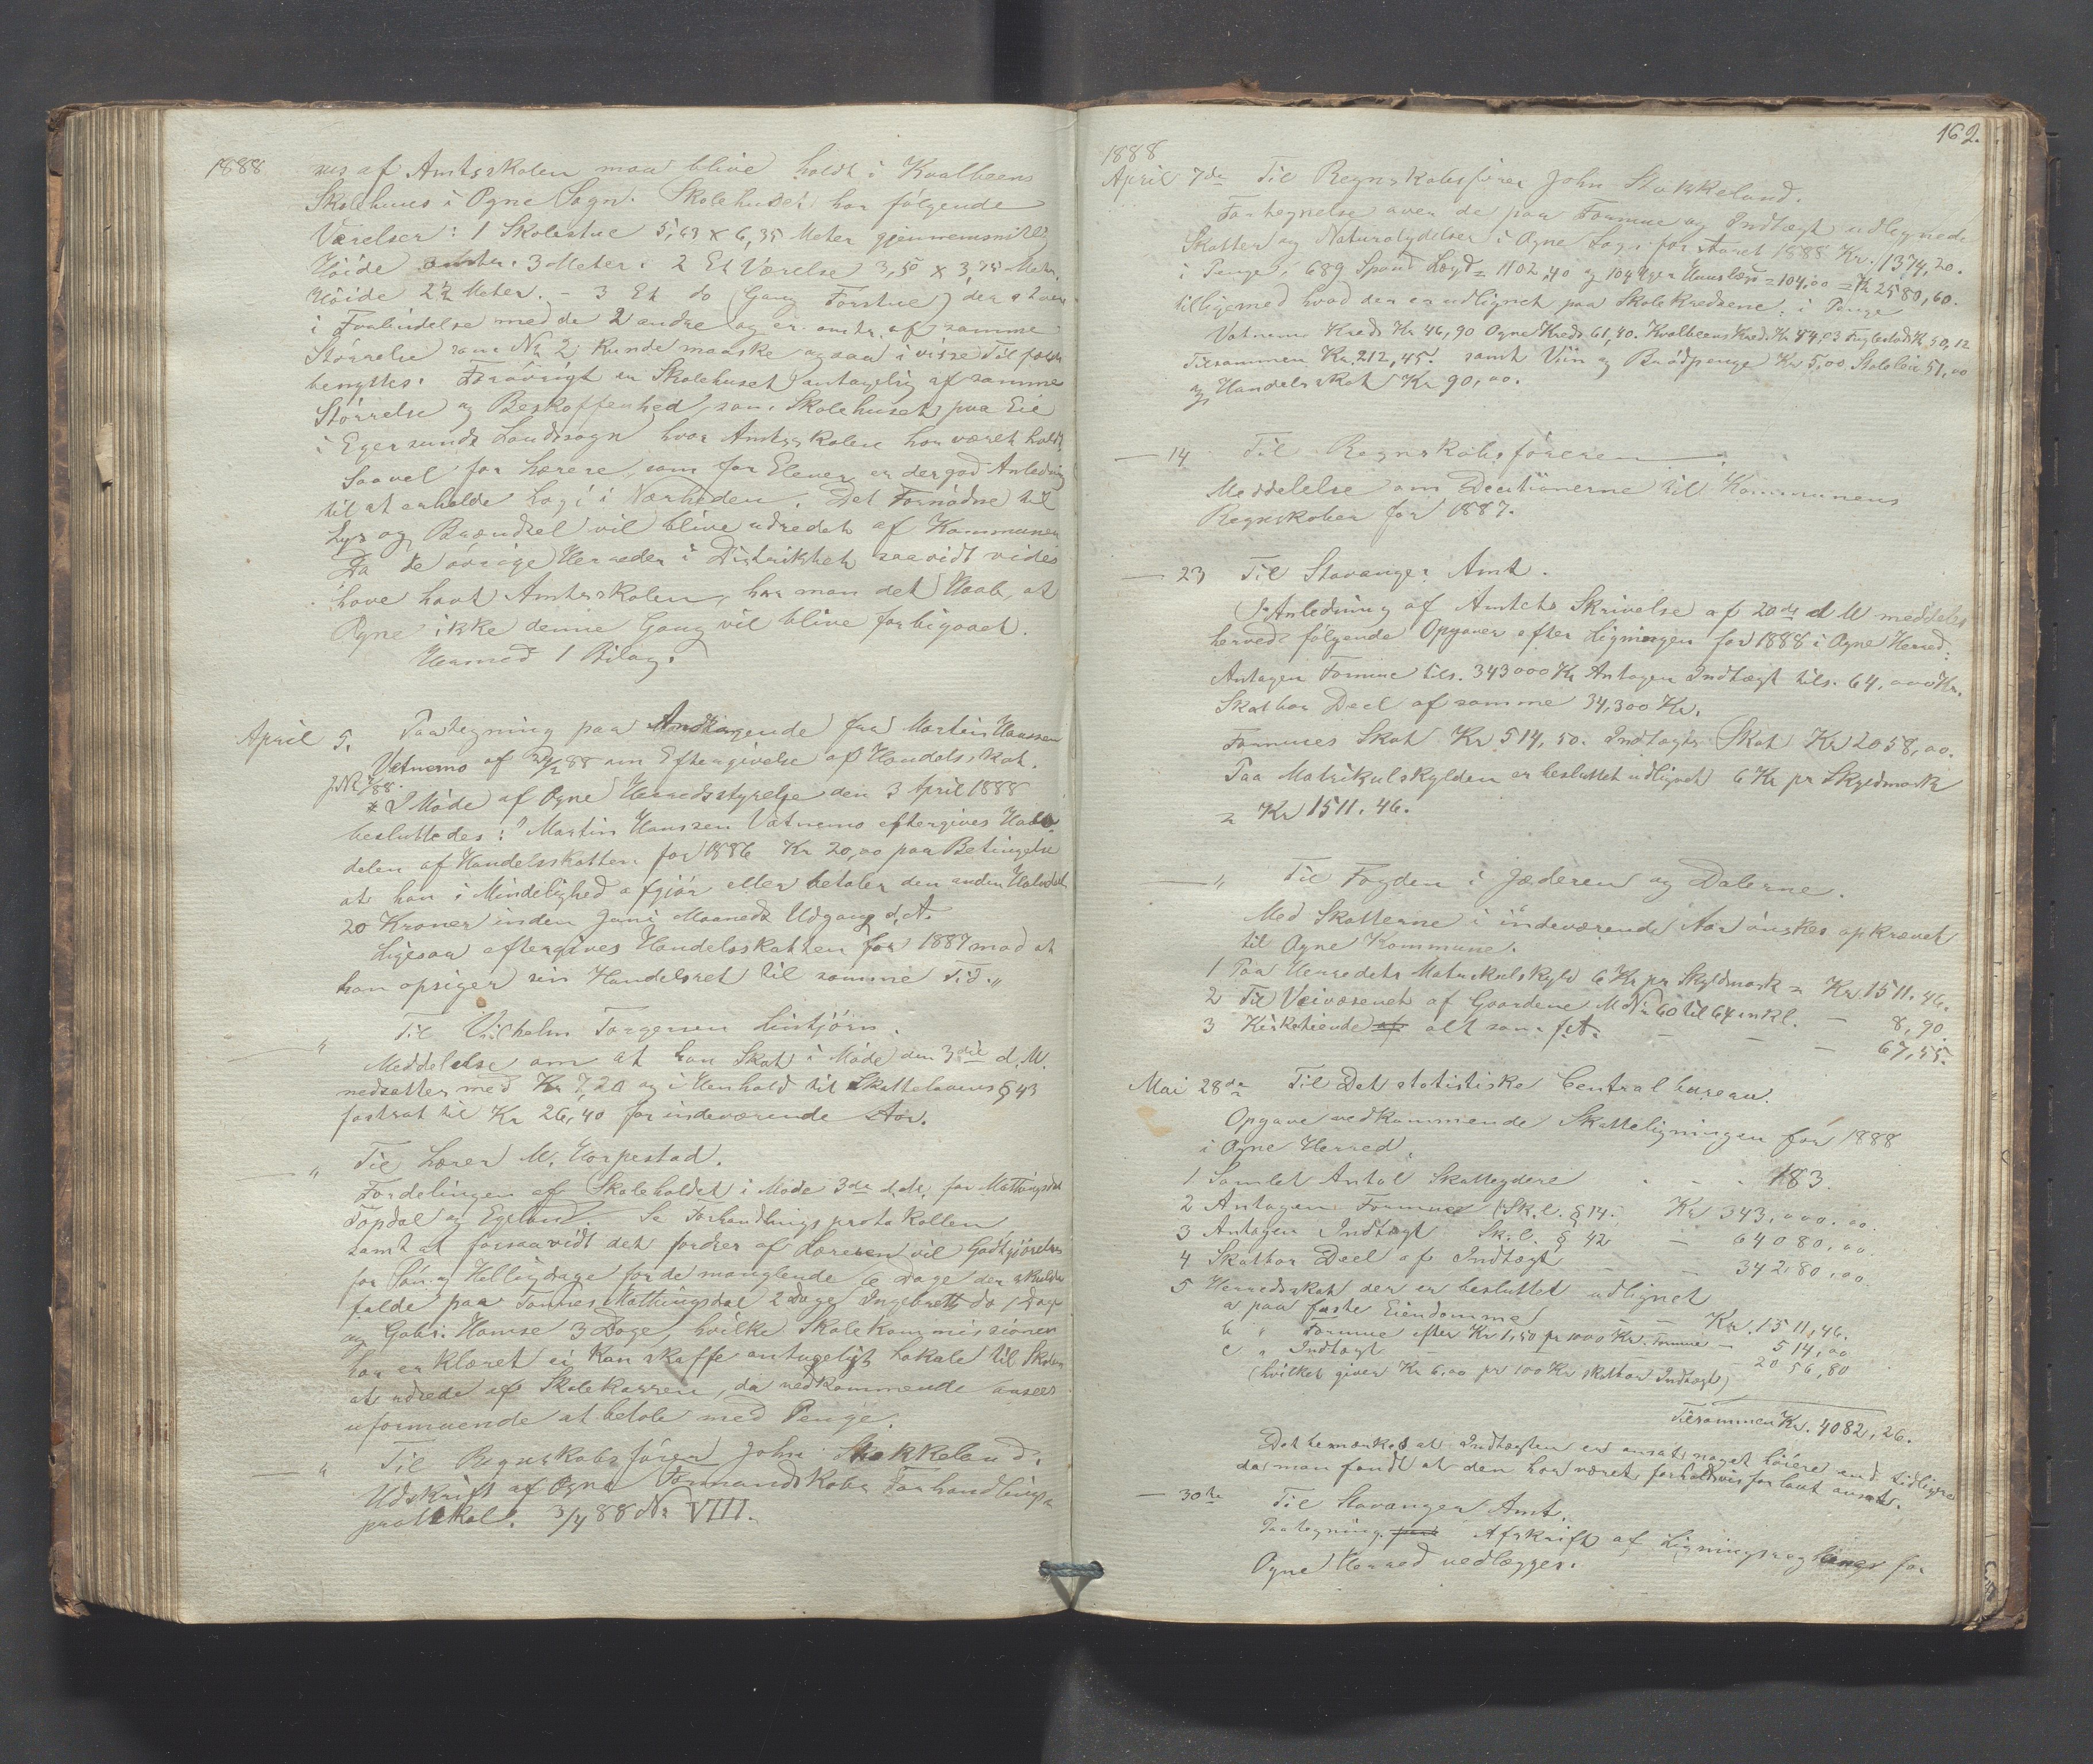 1888 sus af Amtsskolen maa blive holdt i Kvalbeens
Skolehuus i Ogne Sogn. Skolehuset har følgende
Værelser: 1 Skolestue 5,63 x 6,35 Meter gjennemsnitlig
Høide 3 Meter. 2 Et Værelse 3,50 x 3,75 Meter.
Høide 2½ Meter. - 3 Et do (Gang Forstue) der staar
i Forbindelse med de 2 andre og er omtr. af samme
Størrelse som No 2; kunde maaske ogsaa i visse Tilfælde
benyttes. Forøvrigt er Skolehuset antagelig af samme
Størrelse og Beskaffenhed som Skolehuset paa Eie
i Egersunds Landsogn hvor Amtsskolen har været holdt,
Saavel for Lærere, som for Elever er der god Anledning
til at erholde Logi i Nærheden. Det Fornødne til
Lys og Brændsel vil blive udredet af Kommunen
Da de øvrige Herreder i Distriktet saavidt vides
have havt Amtsskolen, har man det Haab, at
Ogne ikke denne Gang vil blive forbigaaet.
Hermed 1 Bilag.
April 5. Paategning paa Andragende fra Martin Hanssen
Vatnemo af 88 om Eftergivelse af Handelsskat.
I Møde af Ogne Herredsstyrelse den 3 April 1888
besluttedes: "Martin Hanssen Vatnemo eftergives Halv-
delen af Handelsskatten for 1886 Kr 20,00 paa Betingelse
at han i Mindelighed afgjør eller betaler den anden Halvdel
20 Kroner inden Juni Maaneds Udgang d. A.
Ligesaa eftergives Handelsskatten for 1887 mod at
han opsiger sin Handelsret til samme Tid."
— " Til Vilhelm Torgersen Lintjørn.
Meddelelse om at han Skat i Møde den 3die d. M.
nedsattes med Kr 7,20 og i Henhold til Skattelovens § 43
fastsat til Kr 26,40 for indeværende Aar.
— " Til Lærer M. Horpestad.
Fordelingen af Skoleholdet i Møde 3de d. M. for Mattingsdal
Topdal og Egeland. Se Forhandlingsprotokollen
samt at forsaavidt det fordres af Læreren vil Godtgjørelse
for Søn og Helligdage for de manglende 6 Dage der skulde
falde paa Tønnes Mattingsdal 2 Dage Ingebrett do 1 Dag
og Gabr. Homse 3 Dage, hvilke Skolekommissionen
har erklæret ei kan skaffe antageligt Lokale til Skolen
at udrede af Skolekassen, da vedkommende ansees
uformuende at betale med Penge.
— " Til Regnskabsfører John Stokkeland.
Udskrift af Ogne Formandskabs Forhandlings-
protokol. 3/4 88 No VIII.
162.
1888
April 7de Til Regnskabsfører John Stokkeland.
Fortegnelse over de paa Formue og Indtægt udlignede
Skatter og Naturalydelser i Ogne Sogn for Aaret 1888 Kr. 1374,20.
i Penge, 689 Spand Lægd = 1102,40 og 104 Uger Huuslæg = 104,00 = Kr 2580,60.
tilligemed hvad der er udlignet paa Skolekredsene: i Penge
Vatnemo Kreds Kr 46,90 Ogne Kreds 61,40. Kvalbeens Kreds Kr 54,03 Fuglestad K 50,12
Tilsammen Kr. 212,45. samt Viin og Brødpenge Kr 5,00 Skoleløn 51,00
og Handelsskat Kr 90,00.
— 14 Til Regnskabsføreren
Meddelelse om Decisionerne til Kommunens
Regnskaber for 1887.
— 23 Til Stavanger Amt.
I Anledning af Amtets Skrivelse af 20de d M meddeles
herved følgende Opgaver efter Ligningen for 1888 i Ogne Herred:
Antagen Formue tils. 343000 Kr Antagen Indtægt tils. 64,000 Kr.
Skatbar Deel af samme 34,300 Kr.
Formues Skat Kr 514,50. Indtægts Skat Kr 2058,00.
Paa Matrikulskylden er besluttet udlignet 6 Kr pr Skyldmark
= Kr 1511.46.
— " Til Fogden i Jæderen og Dalerne.
Med Skatterne i indeværende Aar ønskes opkrævet
til Ogne Kommune.
1 Paa Herredets Matrikulskyld 6 Kr pr Skyldmark = Kr. 1511.46.
2 Til Veivæsenet af Gaardene M No 60 til 64 inkl. — 8,90.
3 Kirketiende alt som f. A. — — — 67,55.
Mai 28de Til Det statistiske Centralbureau.
Opgave vedkommende Skatteligningen for 1888
i Ogne Herred.
1 Samlet Antal Skatteydere - - - 183.
2 Antagen Formue (Sk. l. § 14. Kr 343,000.00.
3 Antagen Indtægt Sk. l. § 42 — 64080.00.
4 Skatbar Deel af Indtægt — — 34280.00.
5 Herredsskat der er besluttet udlignet
a paa faste Eiendomme — — Kr. 1511,46.
b " Formue efter Kr 1,50 pr 1000 Kr. Formue — 514,00
c " Indtægt — — — 2056,80
(hvilket giver Kr 6,00 pr 100 Kr skatbar Indtægt)
Tilsammen Kr. 4082,26.
Det bemærkes at Indtægten er ansat noget høiere end tidligere
da man fandt at den har været forholdsvis for lavt ansat.
— 30te Til Stavanger Amt.
Paategning. Afskrift af Ligningsreglerne for
Ogne Herred vedlægges.